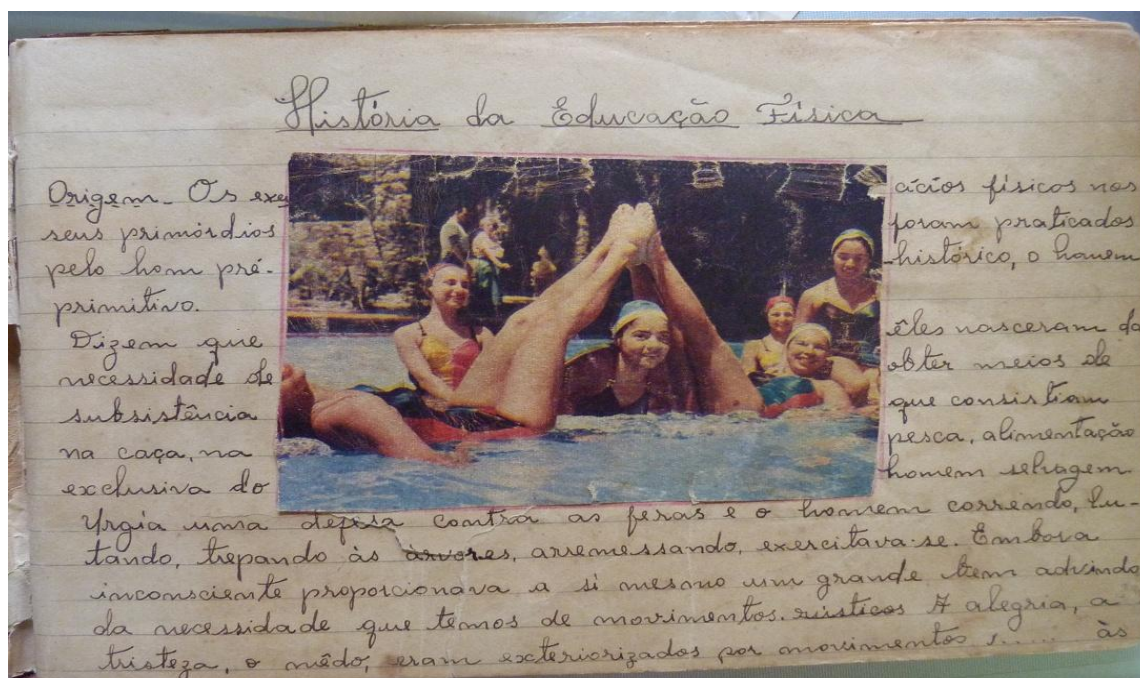 História da Educação Física
Origem_ Os exercícios físicos nos
seus primórdios foram praticados
pelo hom pré-histórico, o homem
primitivo.
Dizem que êles nasceram da
necessidade de obter meios de
subsistência que consistiam
na caça, na pesca, alimentação
exclusiva do homem selvagem
Urgia uma defesa contra as feras e o homem correndo, lu-
tando, trepando às árvores, arremessando, exercitava-se. Embora
inconsciente proporcionava a si mesmo um grande bem advindo
da necessidade que temos de movimentos rústicos A alegria, a
tristeza, o mêdo, eram exteriorizados por movimentos às